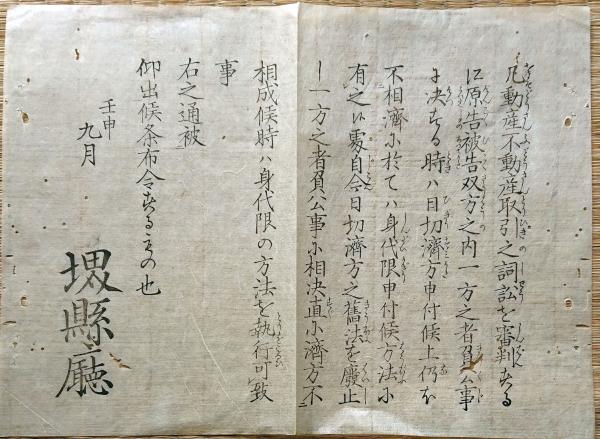 凡動産不動産取引之詞訟を審判する
に原告被告双方之内一方之者負公事
に決する時ハ日切済方申付候上仍ほ
不相済に於てハ身代限申付候方法に
有之候處自今日切済方之舊法を廢止
し一方之者負公事に相決直に済方不
相成候時ハ身代限の方法を執行可致
事
右之通被
仰出候条布令するもの也
壬申
九月
堺縣廳